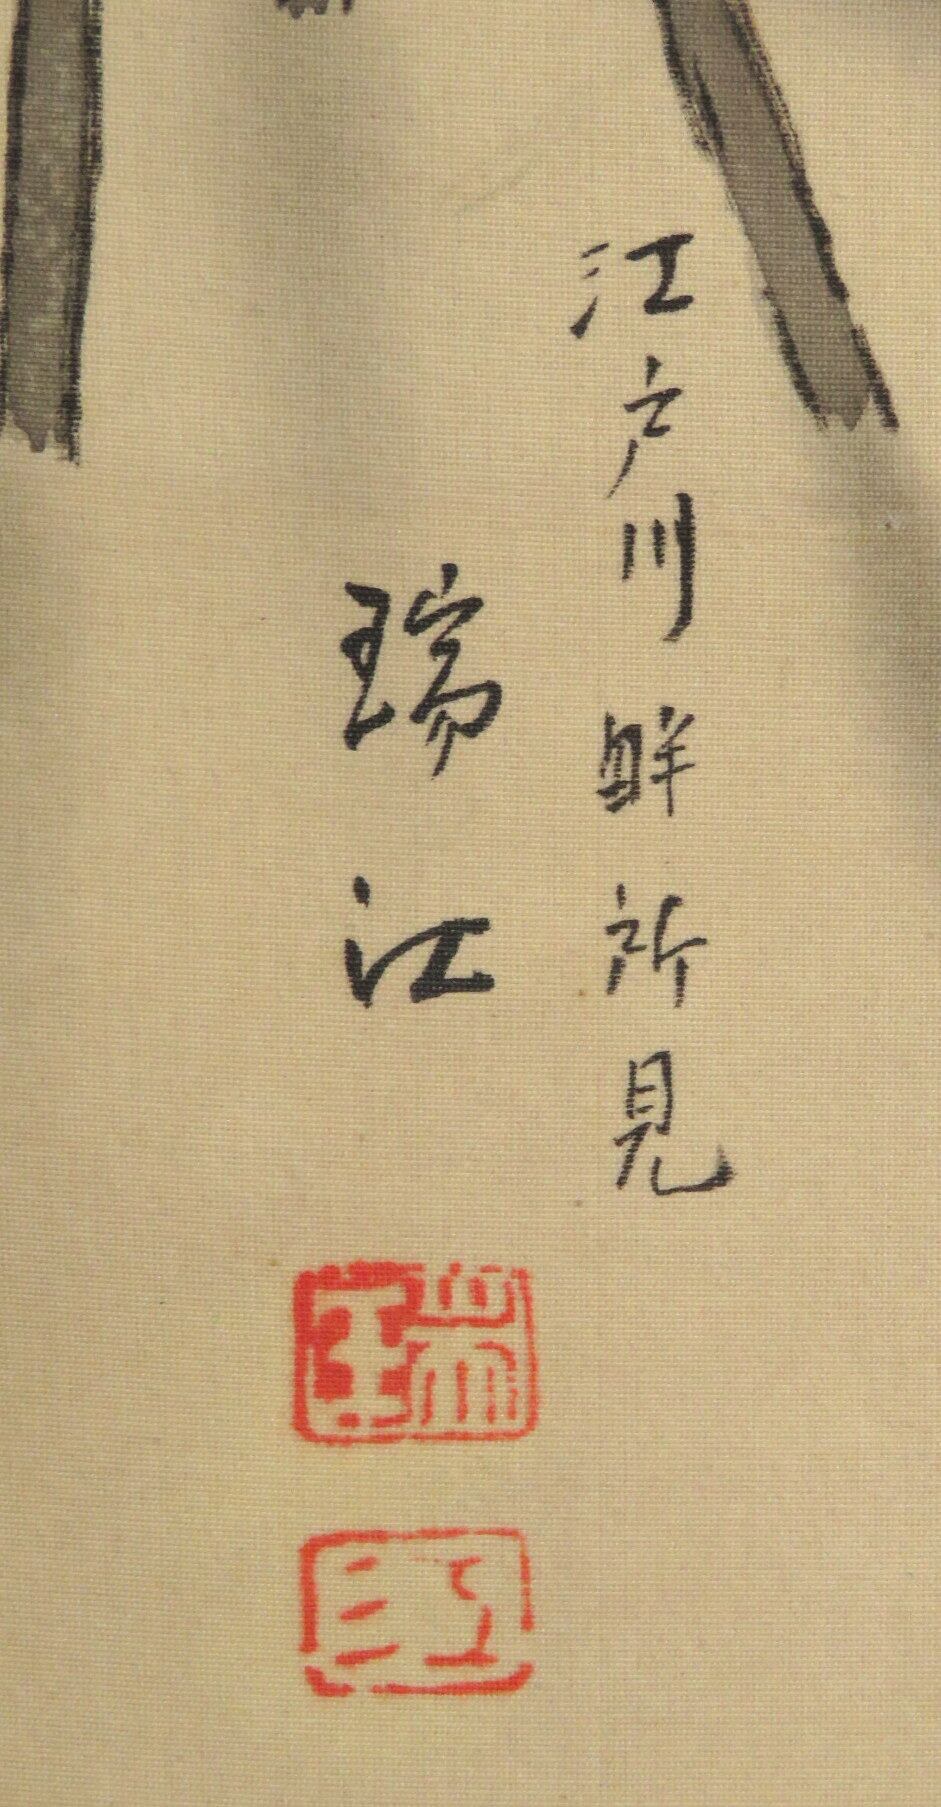 江戸川畔所見
瑞江
瑞
江